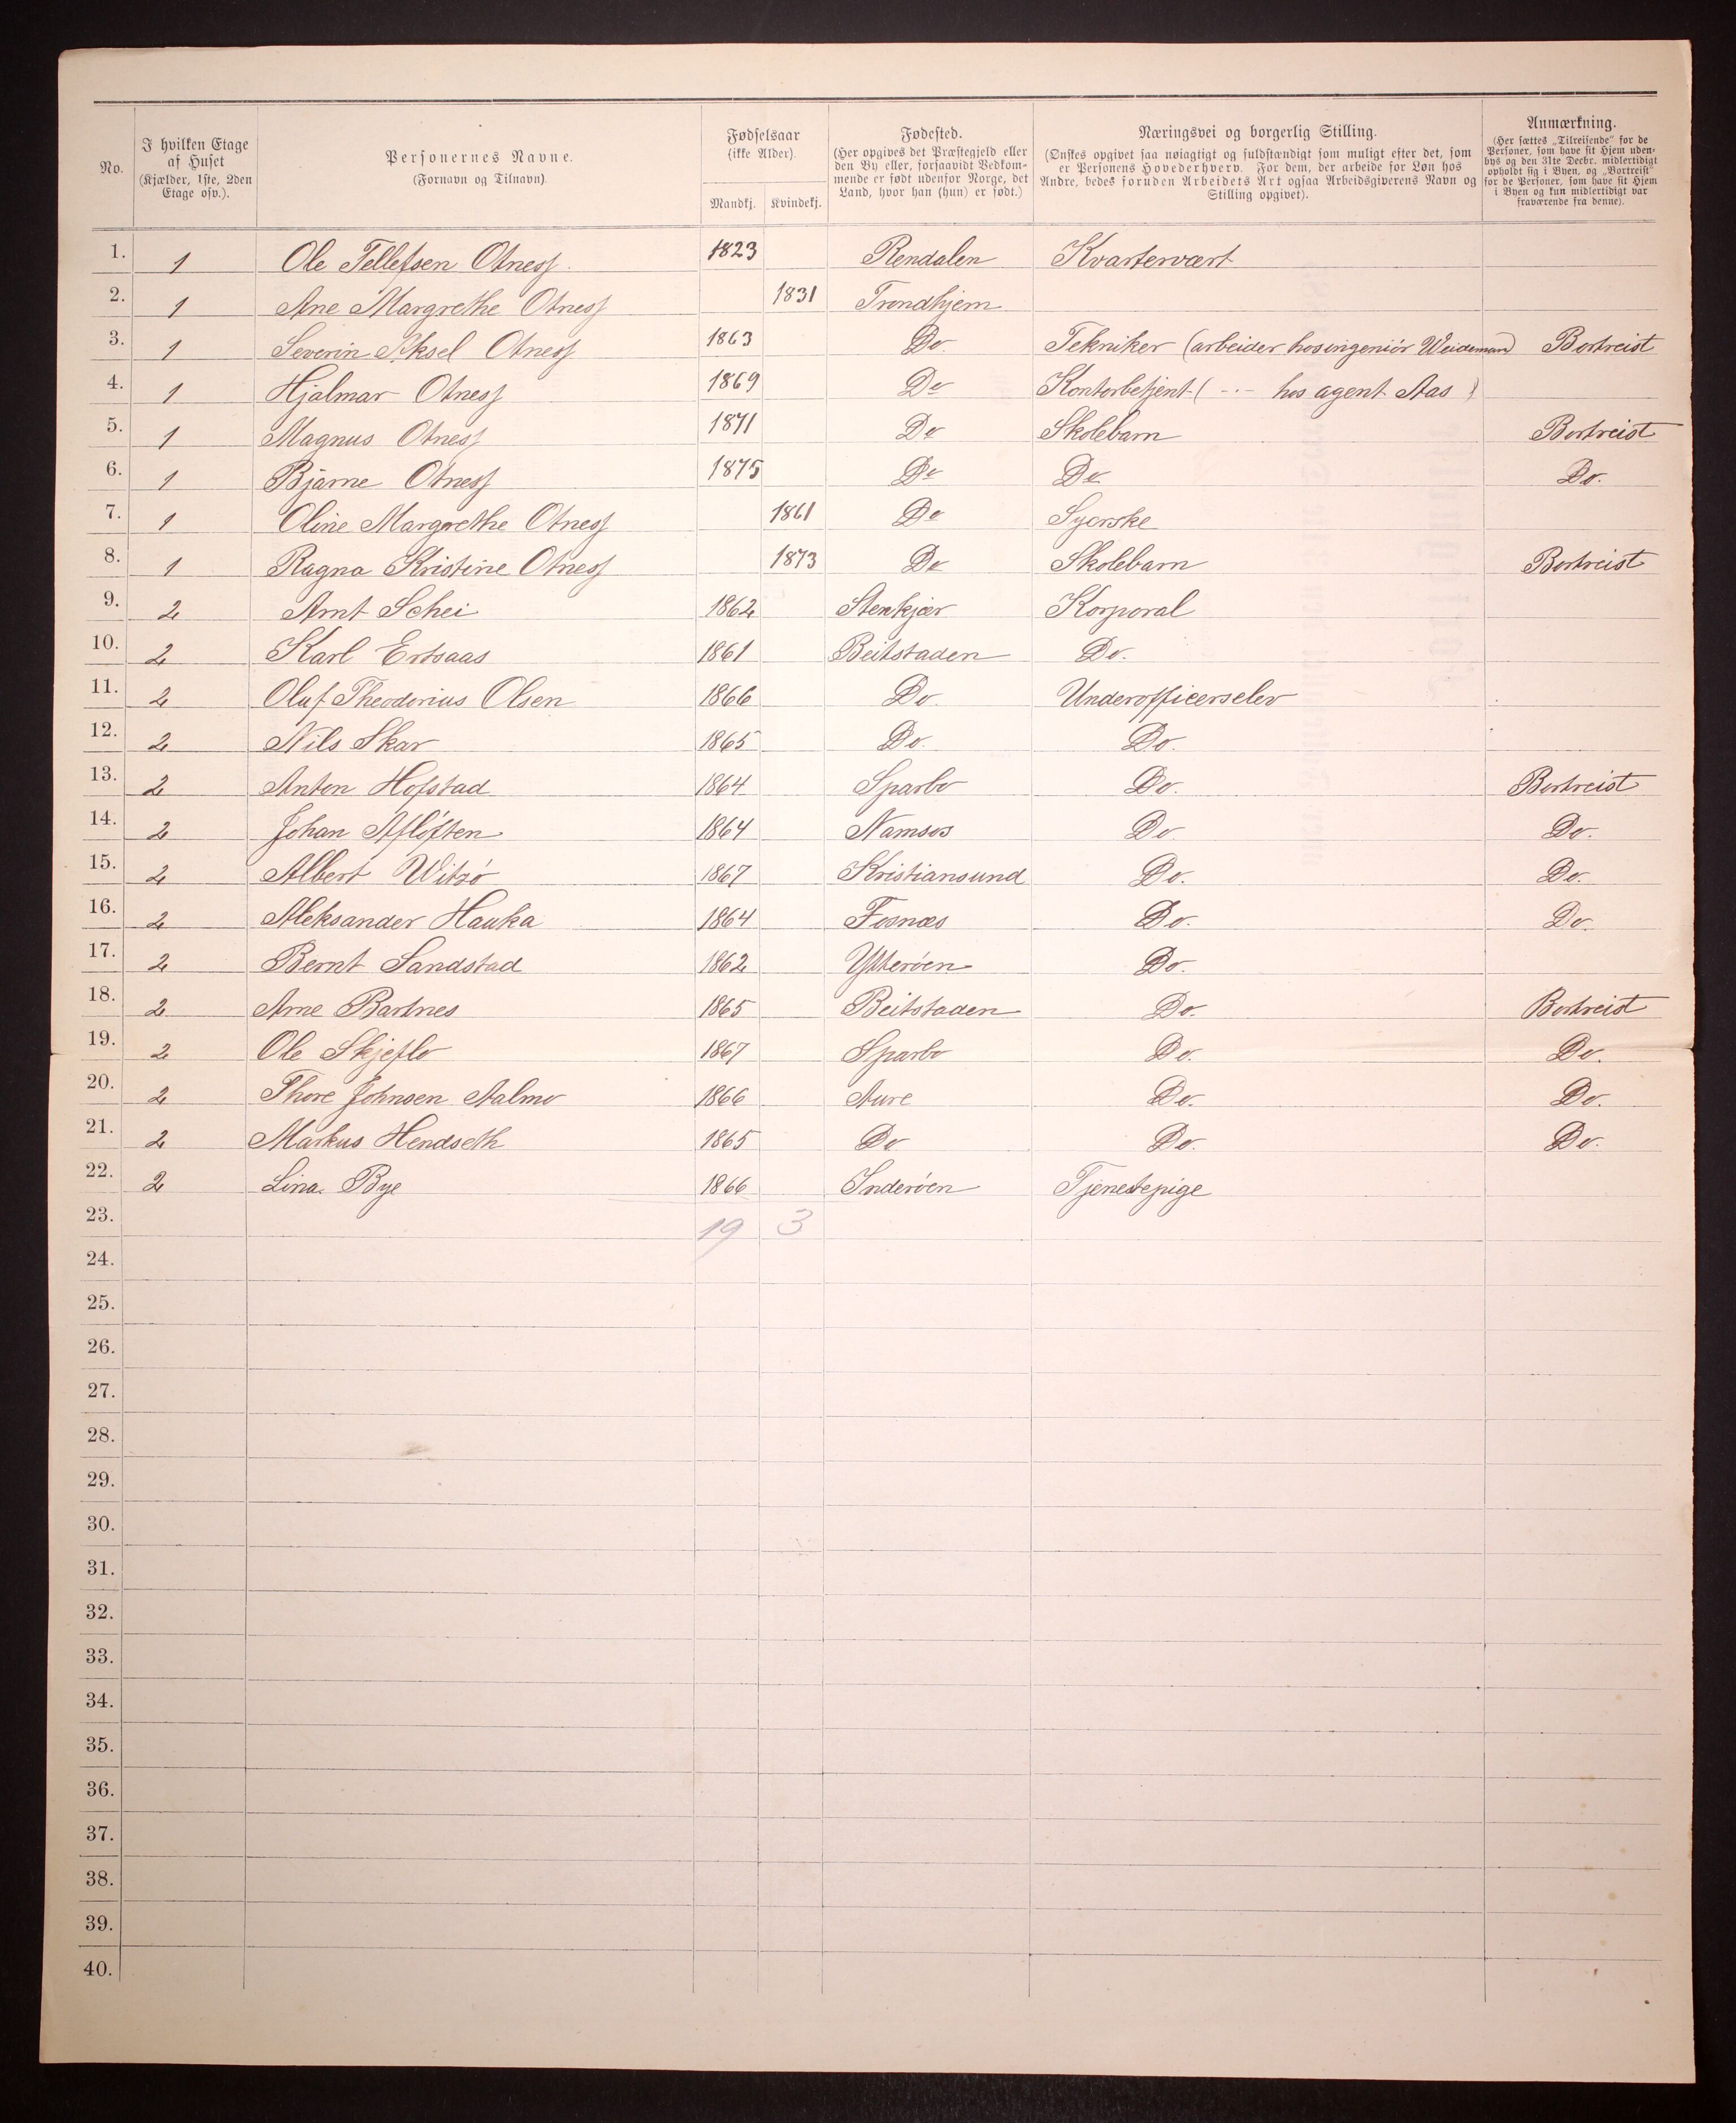 No.
I hvilken Etage af Huset (Kjælder, 1ste, 2den Etage osv.).
Personernes Navne. (Fornavn og Tilnavn)
Fødselsaar (ikke Alder).
Mandkj. Kvindekj.
Fødested. (Her opgives det Præstegjeld eller den By eller, forsaavidt Vedkommende er født udenfor Norge, det Land, hvor han (hun) er født.)
Næringsvei og borgerlig Stilling. (Ønskes opgivet saa nøiagtigt og fuldstændigt som muligt efter det, som er Personens Hovederhverv. For dem, der arbeide for Løn hos Andre, bedes foruden Arbeidets Art ogsaa Arbeidsgiverens Navn og Stilling opgivet).
Anmærkning. (Her sættes „Tilreisende" for de Personer, som have sit Hjem udenbys og den 31te Decbr. midlertidigt opholdt sig i Byen, og „Bortreist" for de Personer, som have sit Hjem i Byen og kun midlertidigt var fraværende fra denne).
1. 1 Ole Tellefsen Otness 1823 Rendalen Kvartervært
2. 1 Ane Margrethe Otness 1831 Trondhjem
3. 1 Severin Aksel Otness 1863 Do. Tekniker (arbeider hos ingeniör Weideman) Bortreist
4. 1 Hjalmar Otness 1869 Do Kontorbetjent ( -·- hos agent Aas )
5. 1 Magnus Otness 1871 Do Skolebarn Bortreist
6. 1 Bjarne Otness 1875 Do Do. Do.
7. 1 Oline Margrethe Otness 1861 Do Syerske
8. 1 Ragna Kristine Otness 1873 Do Skolebarn Bortreist
9. 2 Arnt Schei 1862 Stenkjær Korporal
10. 2 Karl Ertsaas 1861 Beitstaden Do.
11. 2 Oluf Theodorius Olsen 1866 Do. Underofficerselev
12. 2 Nils Skar 1865 Do. Do.
13. 2 Anton Hofstad 1864 Sparbo Do. Bortreist
14. 2 Johan Aflöften 1864 Namsos Do Do.
15. 2 Albert Witsö 1867 Kristiansund Do. Do.
16. 2 Aleksander Hauka 1864 Fosnæs Do. Do.
17. 2 Bernt Sandstad 1862 Ytteröen Do.
18. 2 Arne Bartnes 1865 Beitstaden Do. Bortreist
19. 2 Ole Skjeflo 1867 Sparbo Do. Do.
20. 2 Thore Johnsen Aalmo 1866 Aure Do. Do.
21. 2 Markus Hendseth 1865 Do Do. Do.
22. 2 Lina Bye 1866 Inderöen Tjenestepige
23. 19 3
24.
25.
26.
27.
28.
29.
30.
31.
32.
33.
34.
35.
36.
37.
38.
39.
40.